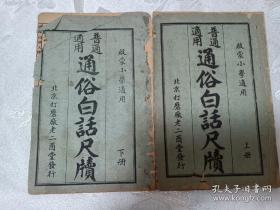 啟蒙小學適用
上册
普通
適用
通俗白話尺牘
北京打磨廠老二酉堂發行
啟蒙小學適用
下册
普通
適用
通俗白話尺牘
北京打磨廠老二酉堂發行